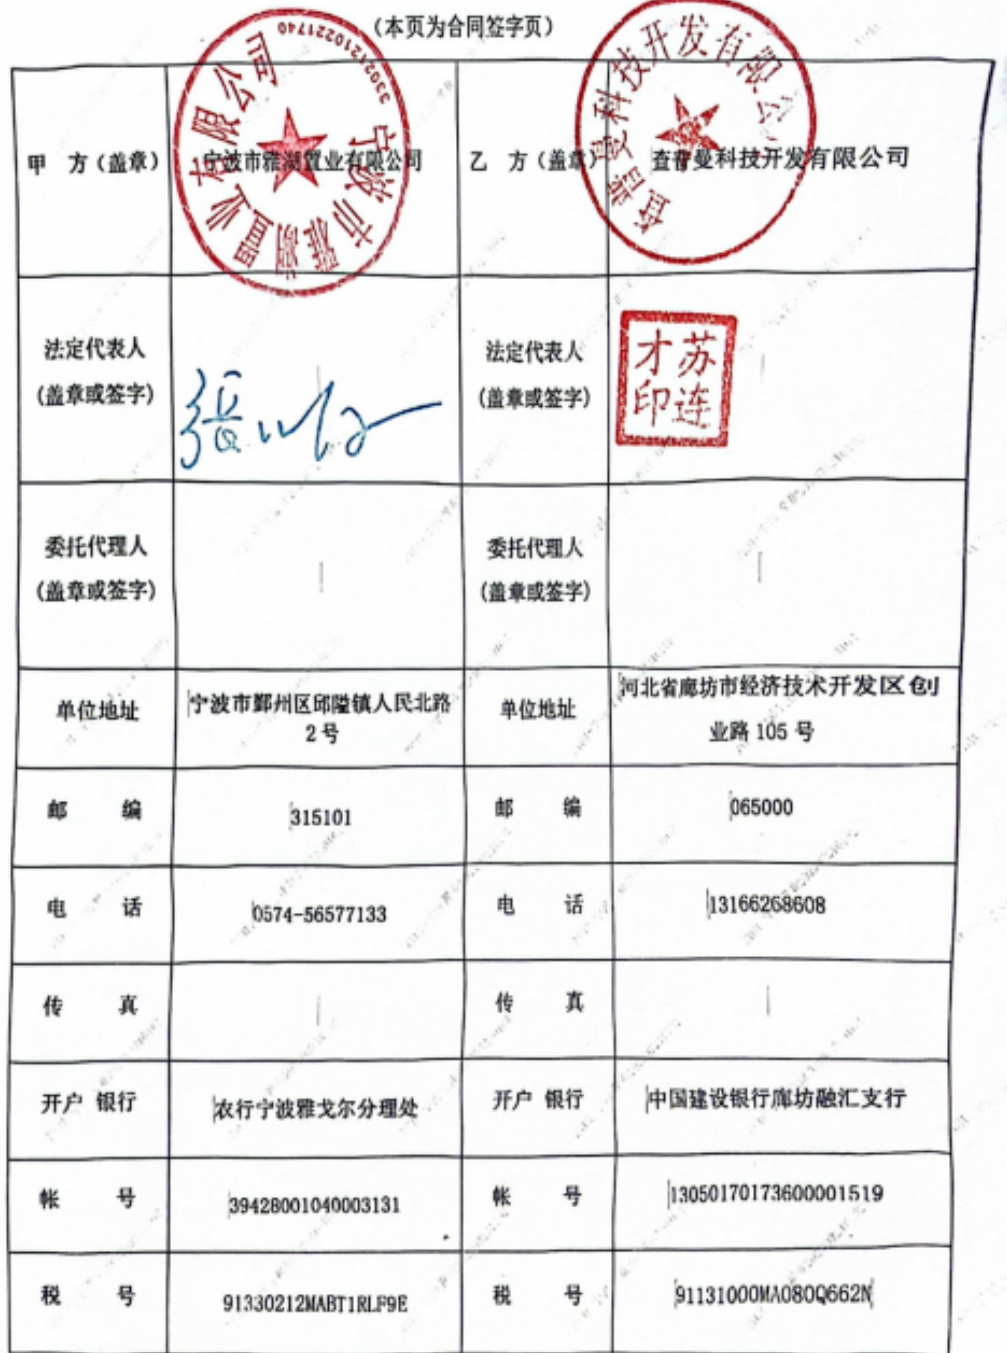 （本页为合同签字页）
甲 方（盖章）
宁波市雅湖置业有限公司
乙 方（盖章）
查普曼科技开发有限公司
宁波市雅湖置业有限公司
查普曼科技开发有限公司
法定代表人
（盖章或签字）
法定代表人
（盖章或签字）
苏连
才印
委托代理人
（盖章或签字）
委托代理人
（盖章或签字）
单位地址
宁波市鄞州区邱隘镇人民北路
2号
单位地址
河北省廊坊市经济技术开发区创
业路 105 号
邮 编
315101
邮 编
065000
电 话
0574-56577133
电 话
13166268608
传 真
传 真
开户 银行
农行宁波雅戈尔分理处
开户 银行
中国建设银行廊坊融汇支行
帐 号
39428001040003131
帐 号
13050170173600001519
税 号
91330212MABT1RLF9E
税 号
91131000MA080Q662N